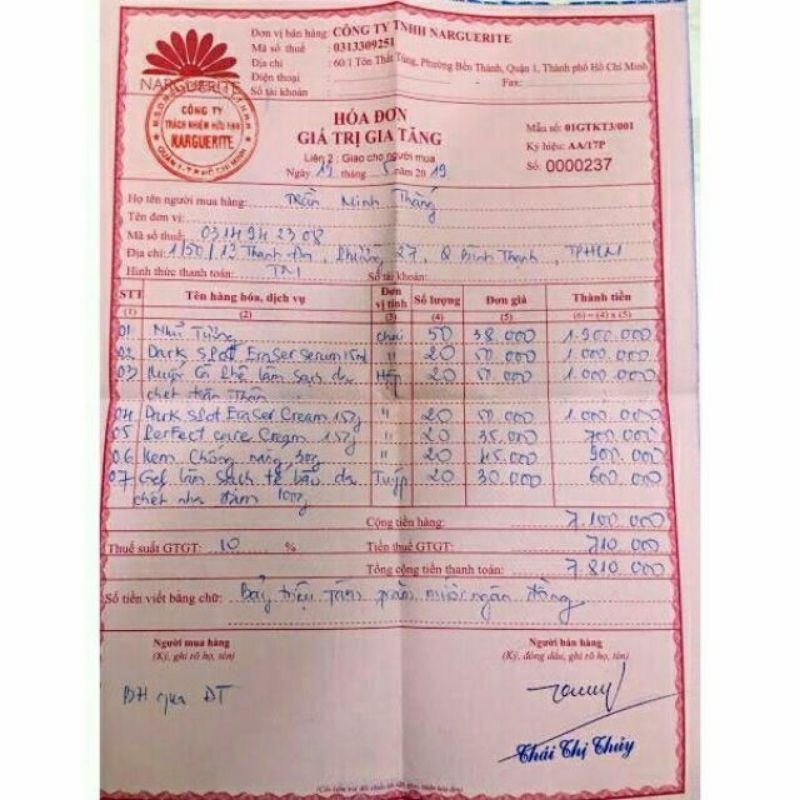 NARGUERITE
Đơn vị bán hàng: CÔNG TY TNHH NARGUERITE
Mã số thuế : 0313309251
Địa chỉ : 60/1 Tôn Thất Tùng, Phường Bến Thành, Quận 1, Thành phố Hồ Chí Minh
Điện thoại : - Fax:
Số tài khoản :
CÔNG TY
TRÁCH NHIỆM HỮU HẠN
NARGUERITE
QUẬN 1 - T.P HỒ CHÍ MINH
HÓA ĐƠN
GIÁ TRỊ GIA TĂNG
Liên 2 : Giao cho người mua
Ngày 12 tháng 5 năm 2019
Mẫu số: 01GTKT3/001
Ký hiệu: AA/17P
Số: 0000237
Họ tên người mua hàng: Trần Minh Thắng
Tên đơn vị:
Mã số thuế: 0314942308
Địa chỉ: 1/50/12 Thanh Đa, Phường 27, Q Bình Thạnh, TPHCM
Hình thức thanh toán: TM Số tài khoản:
STT Tên hàng hóa, dịch vụ Đơn vị tính Số lượng Đơn giá Thành tiền
(1) (2) (3) (4) (5) (6) = (4) x (5)
01 Nhũ Tương chai 50 38.000 1.900.000
02 Dark Spot Eraser Serum 15ml " 20 50.000 1.000.000
03 làm sạch da Hộp 20 50.000 1.000.000
chết toàn Thân
04 Dark Spot Eraser Cream 15g " 20 50.000 1.000.000
05 Perfect care Cream 15g " 20 35.000 700.000
06 Kem Chống nắng 30g " 20 45.000 900.000
07 Gel làm sạch tế bào da Tuýp 20 30.000 600.000
chết nha đam 100g
Cộng tiền hàng: 7.100.000
Thuế suất GTGT: 10 % Tiền thuế GTGT: 710.000
Tổng cộng tiền thanh toán: 7.810.000
Số tiền viết bằng chữ: Bảy triệu tám trăm mười ngàn đồng
Người mua hàng Người bán hàng
(Ký, ghi rõ họ, tên) (Ký, đóng dấu, ghi rõ họ, tên)
BH qua ĐT
Thái Thị Thúy